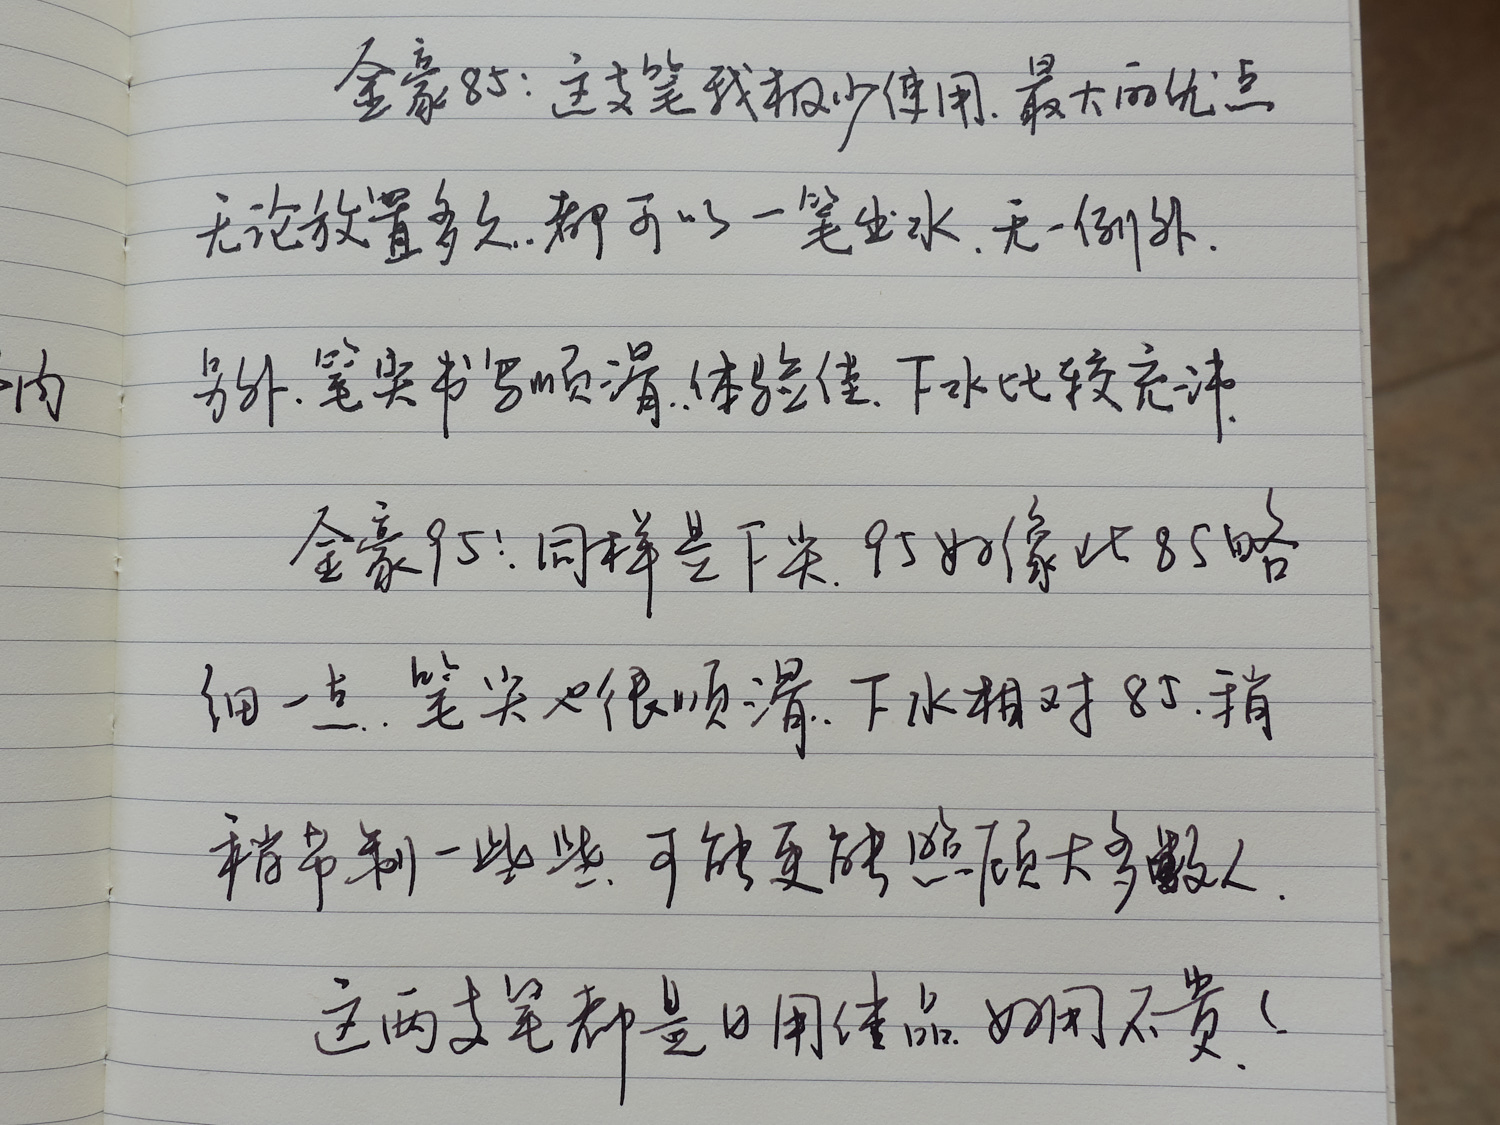 金豪85：这支笔我极少使用.最大的优点
无论放置多久..都可以一笔出水.无一例外.
内
另外.笔尖书写顺滑.体验佳.下水比较充沛.
金豪95：同样是下尖.95好像比85略
细一点.笔尖也很顺滑.下水相对85.稍
稍节制一些些.可能更能照顾大多数人.
这两支笔都是日用佳品.好用不贵！